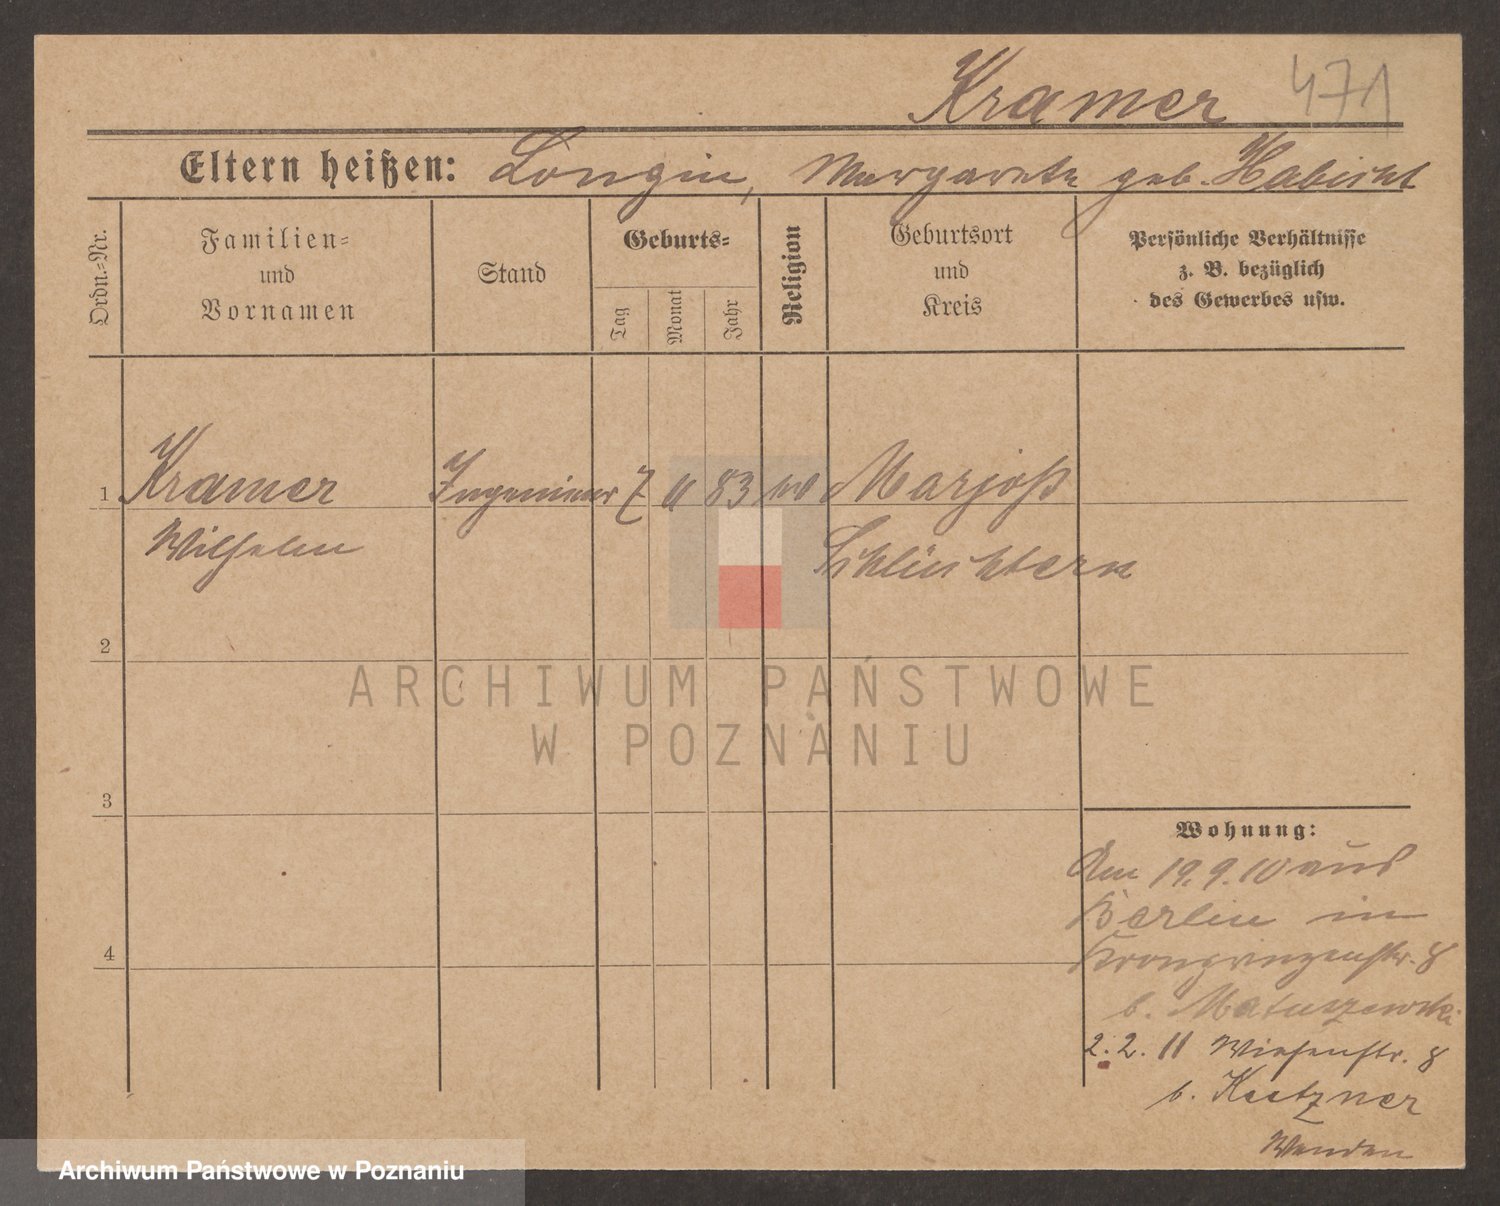 Kramer 471
Eltern heißen: Longin, Margarete geb. Habicht
Ordn.=Nr.
Familien=
und
Vornamen
Stand
Geburts=
Tag
Monat
Jahr
Religion
Geburtsort
und
Kreis
Persönliche Verhältnisse
z. B. bezüglich
des Gewerbes usw.
1 Kramer Ingenieur 7 11 83 Marjoß
Wilhelm Schlüchtern
2
3
4
Wohnung:
Am 19.9.10 aus
Berlin in
Kronprinzenstr. 8
b. Matuszewski
2.2.11 Wiesenstr. 8
b. Kretzner
Wenden
ARCHIWUM PAŃSTWOWE
W POZNANIU
Archiwum Państwowe w Poznaniu